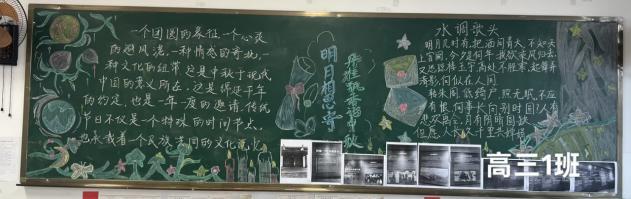 一个团圆的象征,一个心灵
的避风港,一种情感的寄托,一
种文化的纽带,这是中秋于现代
中国的意义所在。这是绵延千年
的约定,也是一年一度的邀请,传统
节日不仅是一个特殊的时间节点,
也承载着一个民族共同的文化记忆
明月相思寄
丹桂飘香韵中秋
水调歌头
明月几时有,把酒问青天,不知天
上宫阙,今夕是何年,我欲乘风归去,
又恐琼楼玉宇,高处不胜寒,起舞弄
清影,何似在人间
转朱阁,低绮户,照无眠,不应
有恨,何事长向别时圆?人有
悲欢离合,月有阴晴圆缺
但愿人长久,千里共婵娟
高三1班